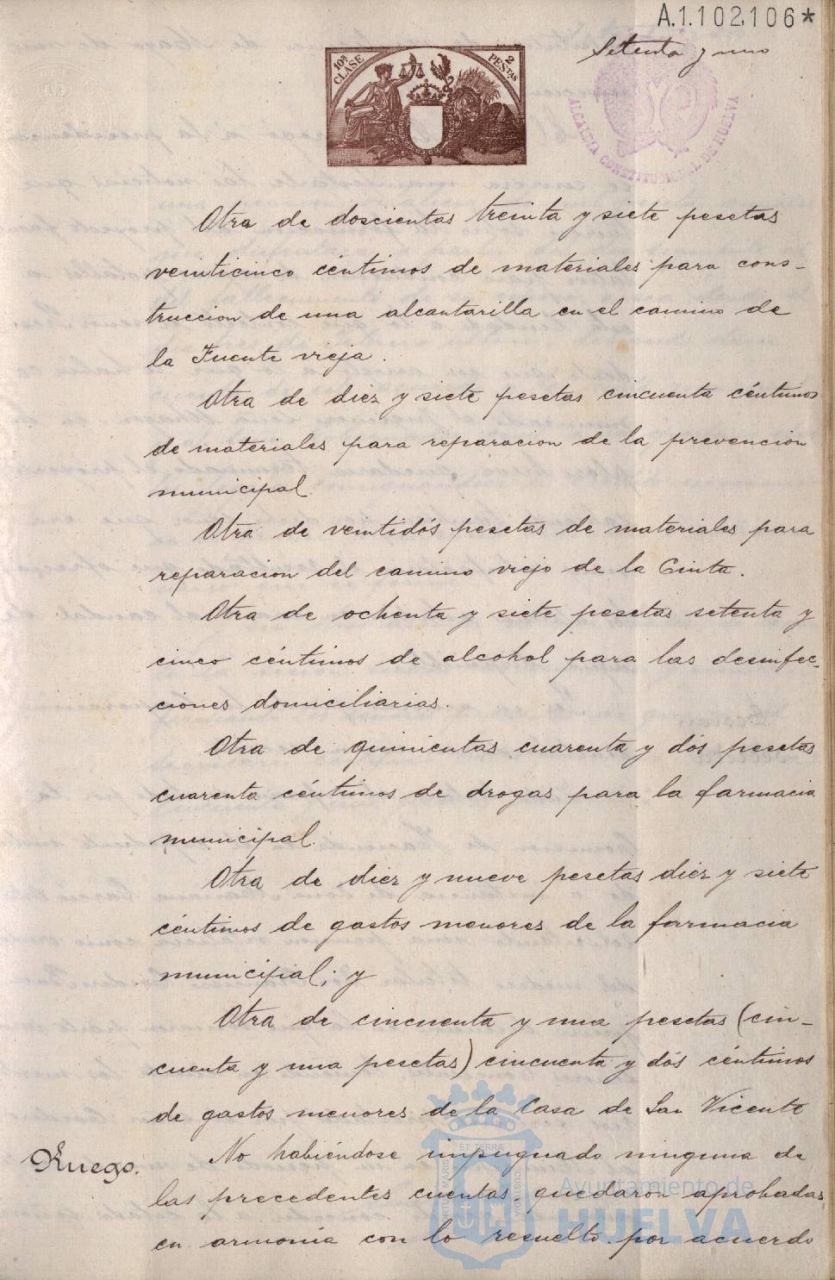 A.1.102,106*
Setenta y uno
10ª CLASE
2 PESETAS
ALCALDIA CONSTITUCIONAL DE HUELVA
Otra de doscientas treinta y siete pesetas
veinticinco céntimos de materiales para cons-
truccion de una alcantarilla en el camino de
la Fuente vieja.
Otra de diez y siete pesetas cincuenta céntimos
de materiales para reparacion de la prevencion
municipal.
Otra de veintidós pesetas de materiales para
reparacion del camino viejo de la Cinta.
Otra de ochenta y siete pesetas setenta y
cinco céntimos de alcohol para las desinfec-
ciones domiciliarias.
Otra de quinientas cuarenta y dós pesetas
cuarenta céntimos de drogas para la farmacia
municipal.
Otra de diez y nueve pesetas diez y siete
céntimos de gastos menores de la farmacia
municipal; y
Otra de cincuenta y una pesetas (cin-
cuenta y una pesetas) cincuenta y dós céntimos
de gastos menores de la Casa de San Vicente
Ruego.
No habiéndose impugnado ninguna de
las precedentes cuentas, quedaron aprobadas
en armonía con lo resuelto por acuerdo
Ayuntamiento de
HUELVA